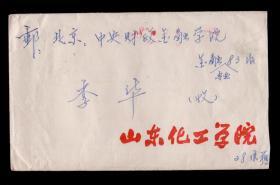 邮：北京：中央财政金融学院
金融83班
专业
李华（收）
山东化工学院